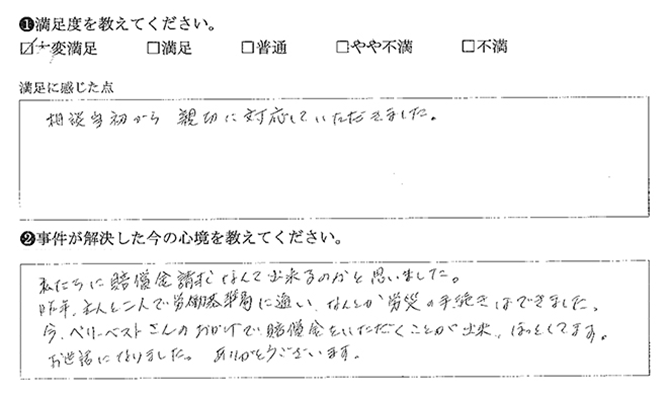 ❶満足度を教えてください。
☑大変満足 □満足 □普通 □やや不満 □不満
満足に感じた点
相談当初から 親切に対応していただきました。
❷事件が解決した今の心境を教えてください。
私たちに賠償金請求なんて出来るのかと思いました。
昨年、主人と二人で労働基準局に通い、なんとか労災の手続きはできました、
今、ベリーベストさんのおかげで賠償金をいただくことが出来、ほっとしてます。
お世話になりました。 ありがとうございます。